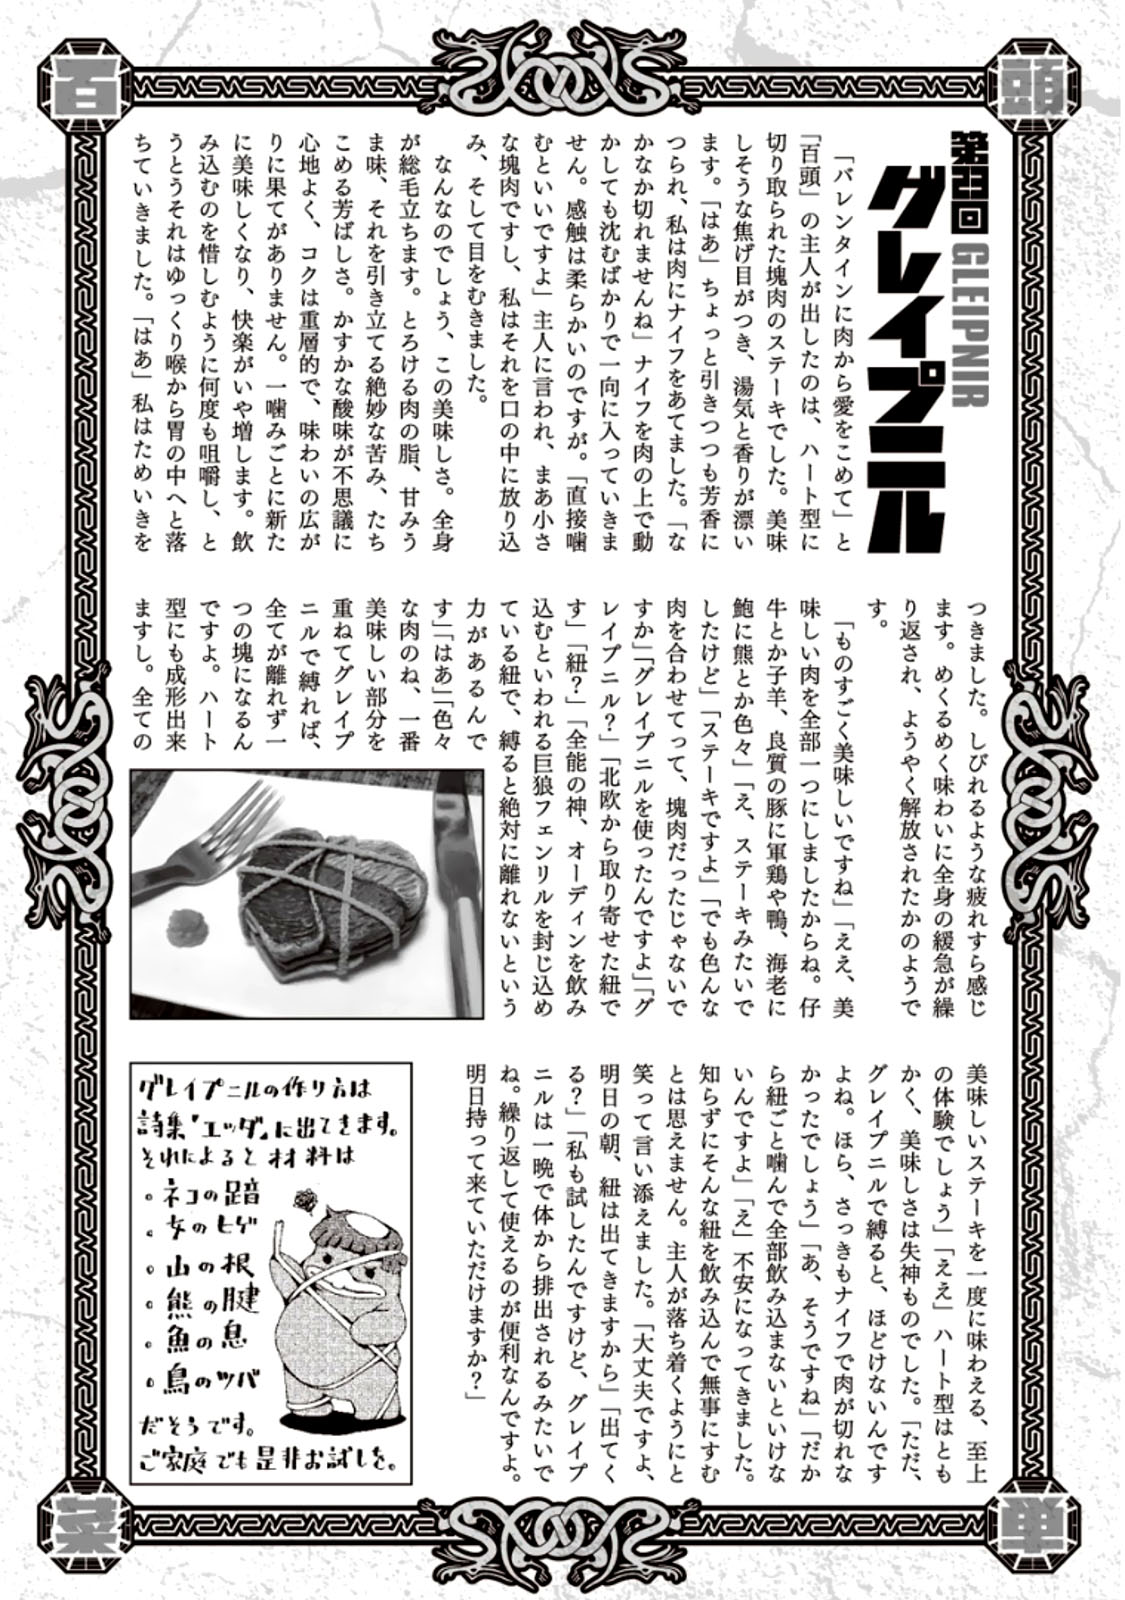 百
頭
菜
単
第23回
GLEIPNIR
グレイプニル
「バレンタインに肉から愛をこめて」と
「百頭」の主人が出したのは、ハート型に
切り取られた塊肉のステーキでした。美味
しそうな焦げ目がつき、湯気と香りが漂い
ます。「はあ」ちょっと引きつつも芳香に
つられ、私は肉にナイフをあてました。「な
かなか切れませんね」ナイフを肉の上で動
かしても沈むばかりで一向に入っていきま
せん。感触は柔らかいのですが。「直接噛
むといいですよ」主人に言われ、まあ小さ
な塊肉ですし、私はそれを口の中に放り込
み、そして目をむきました。
なんなのでしょう、この美味しさ。全身
が総毛立ちます。とろける肉の脂、甘みう
ま味、それを引き立てる絶妙な苦み、たち
こめる芳ばしさ。かすかな酸味が不思議に
心地よく、コクは重層的で、味わいの広が
りに果てがありません。一噛みごとに新た
に美味しくなり、快楽がいや増します。飲
み込むのを惜しむように何度も咀嚼し、と
うとうそれはゆっくり喉から胃の中へと落
ちていきました。「はあ」私はためいきを
つきました。しびれるような疲れすら感じ
ます。めくるめく味わいに全身の緩急が繰
り返され、ようやく解放されたかのようで
す。
「ものすごく美味しいですね」「ええ、美
味しい肉を全部一つにしましたからね。仔
牛とか子羊、良質の豚に軍鶏や鴨、海老に
鮑に熊とか色々」「え、ステーキみたいで
したけど」「ステーキですよ」「でも色んな
肉を合わせてって、塊肉だったじゃないで
すか」「グレイプニルを使ったんですよ」「グ
レイプニル?」「北欧から取り寄せた紐で
す」「紐?」「全能の神、オーディンを飲み
込むといわれる巨狼フェンリルを封じ込め
ている紐で、縛ると絶対に離れないという
力があるんで
す」「はあ」「色々
な肉のね、一番
美味しい部分を
重ねてグレイプ
ニルで縛れば、
全てが離れず一
つの塊になるん
ですよ。ハート
型にも成形出来
ますし。全ての
美味しいステーキを一度に味わえる、至上
の体験でしょう」「ええ」ハート型はとも
かく、美味しさは失神ものでした。「ただ、
グレイプニルで縛ると、ほどけないんです
よね。ほら、さっきもナイフで肉が切れな
かったでしょう」「あ、そうですね」「だか
ら紐ごと噛んで全部飲み込まないといけな
いんですよ」「え」不安になってきました。
知らずにそんな紐を飲み込んで無事にすむ
とは思えません。主人が落ち着くようにと
笑って言い添えました。「大丈夫ですよ、
明日の朝、紐は出てきますから」「出てく
る?」「私も試したんですけど、グレイプ
ニルは一晩で体から排出されるみたいで
ね。繰り返して使えるのが便利なんですよ。
明日持って来ていただけますか?」
グレイプニルの作り方は
詩集『エッダ』に出てきます。
それによると材料は
。ネコの足音
。女のヒゲ
。山の根
。熊の腱
。魚の息
。鳥のツバ
だそうです。
ご家庭でも是非お試しを。